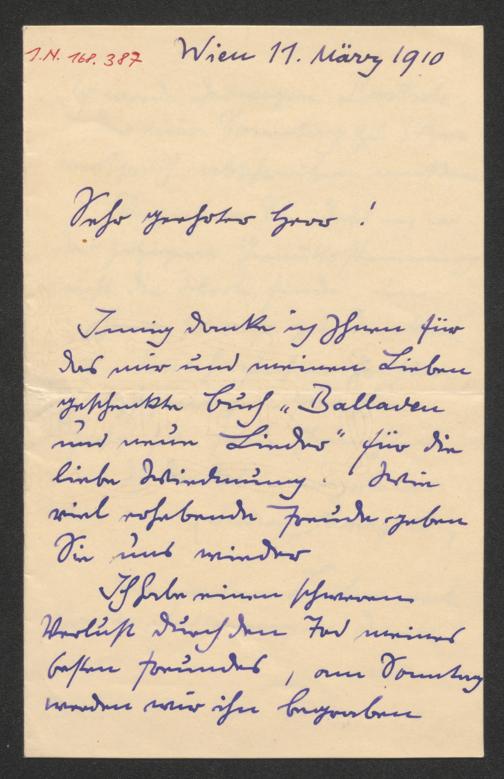 I.N. 168.387
Wien 11. März 1910
Sehr geehrter Herr!
Innig danke ich Ihnen für
das mir und meinen Lieben
geschenkte Buch „Balladen
und neue Lieder" für die
liebe Widmung. Wie
viel erhebende Freude geben
Sie uns wieder
Ich habe einen schweren
Verlust durch den Tod meines
besten Freundes, am Sonntag
werden wir ihn begraben